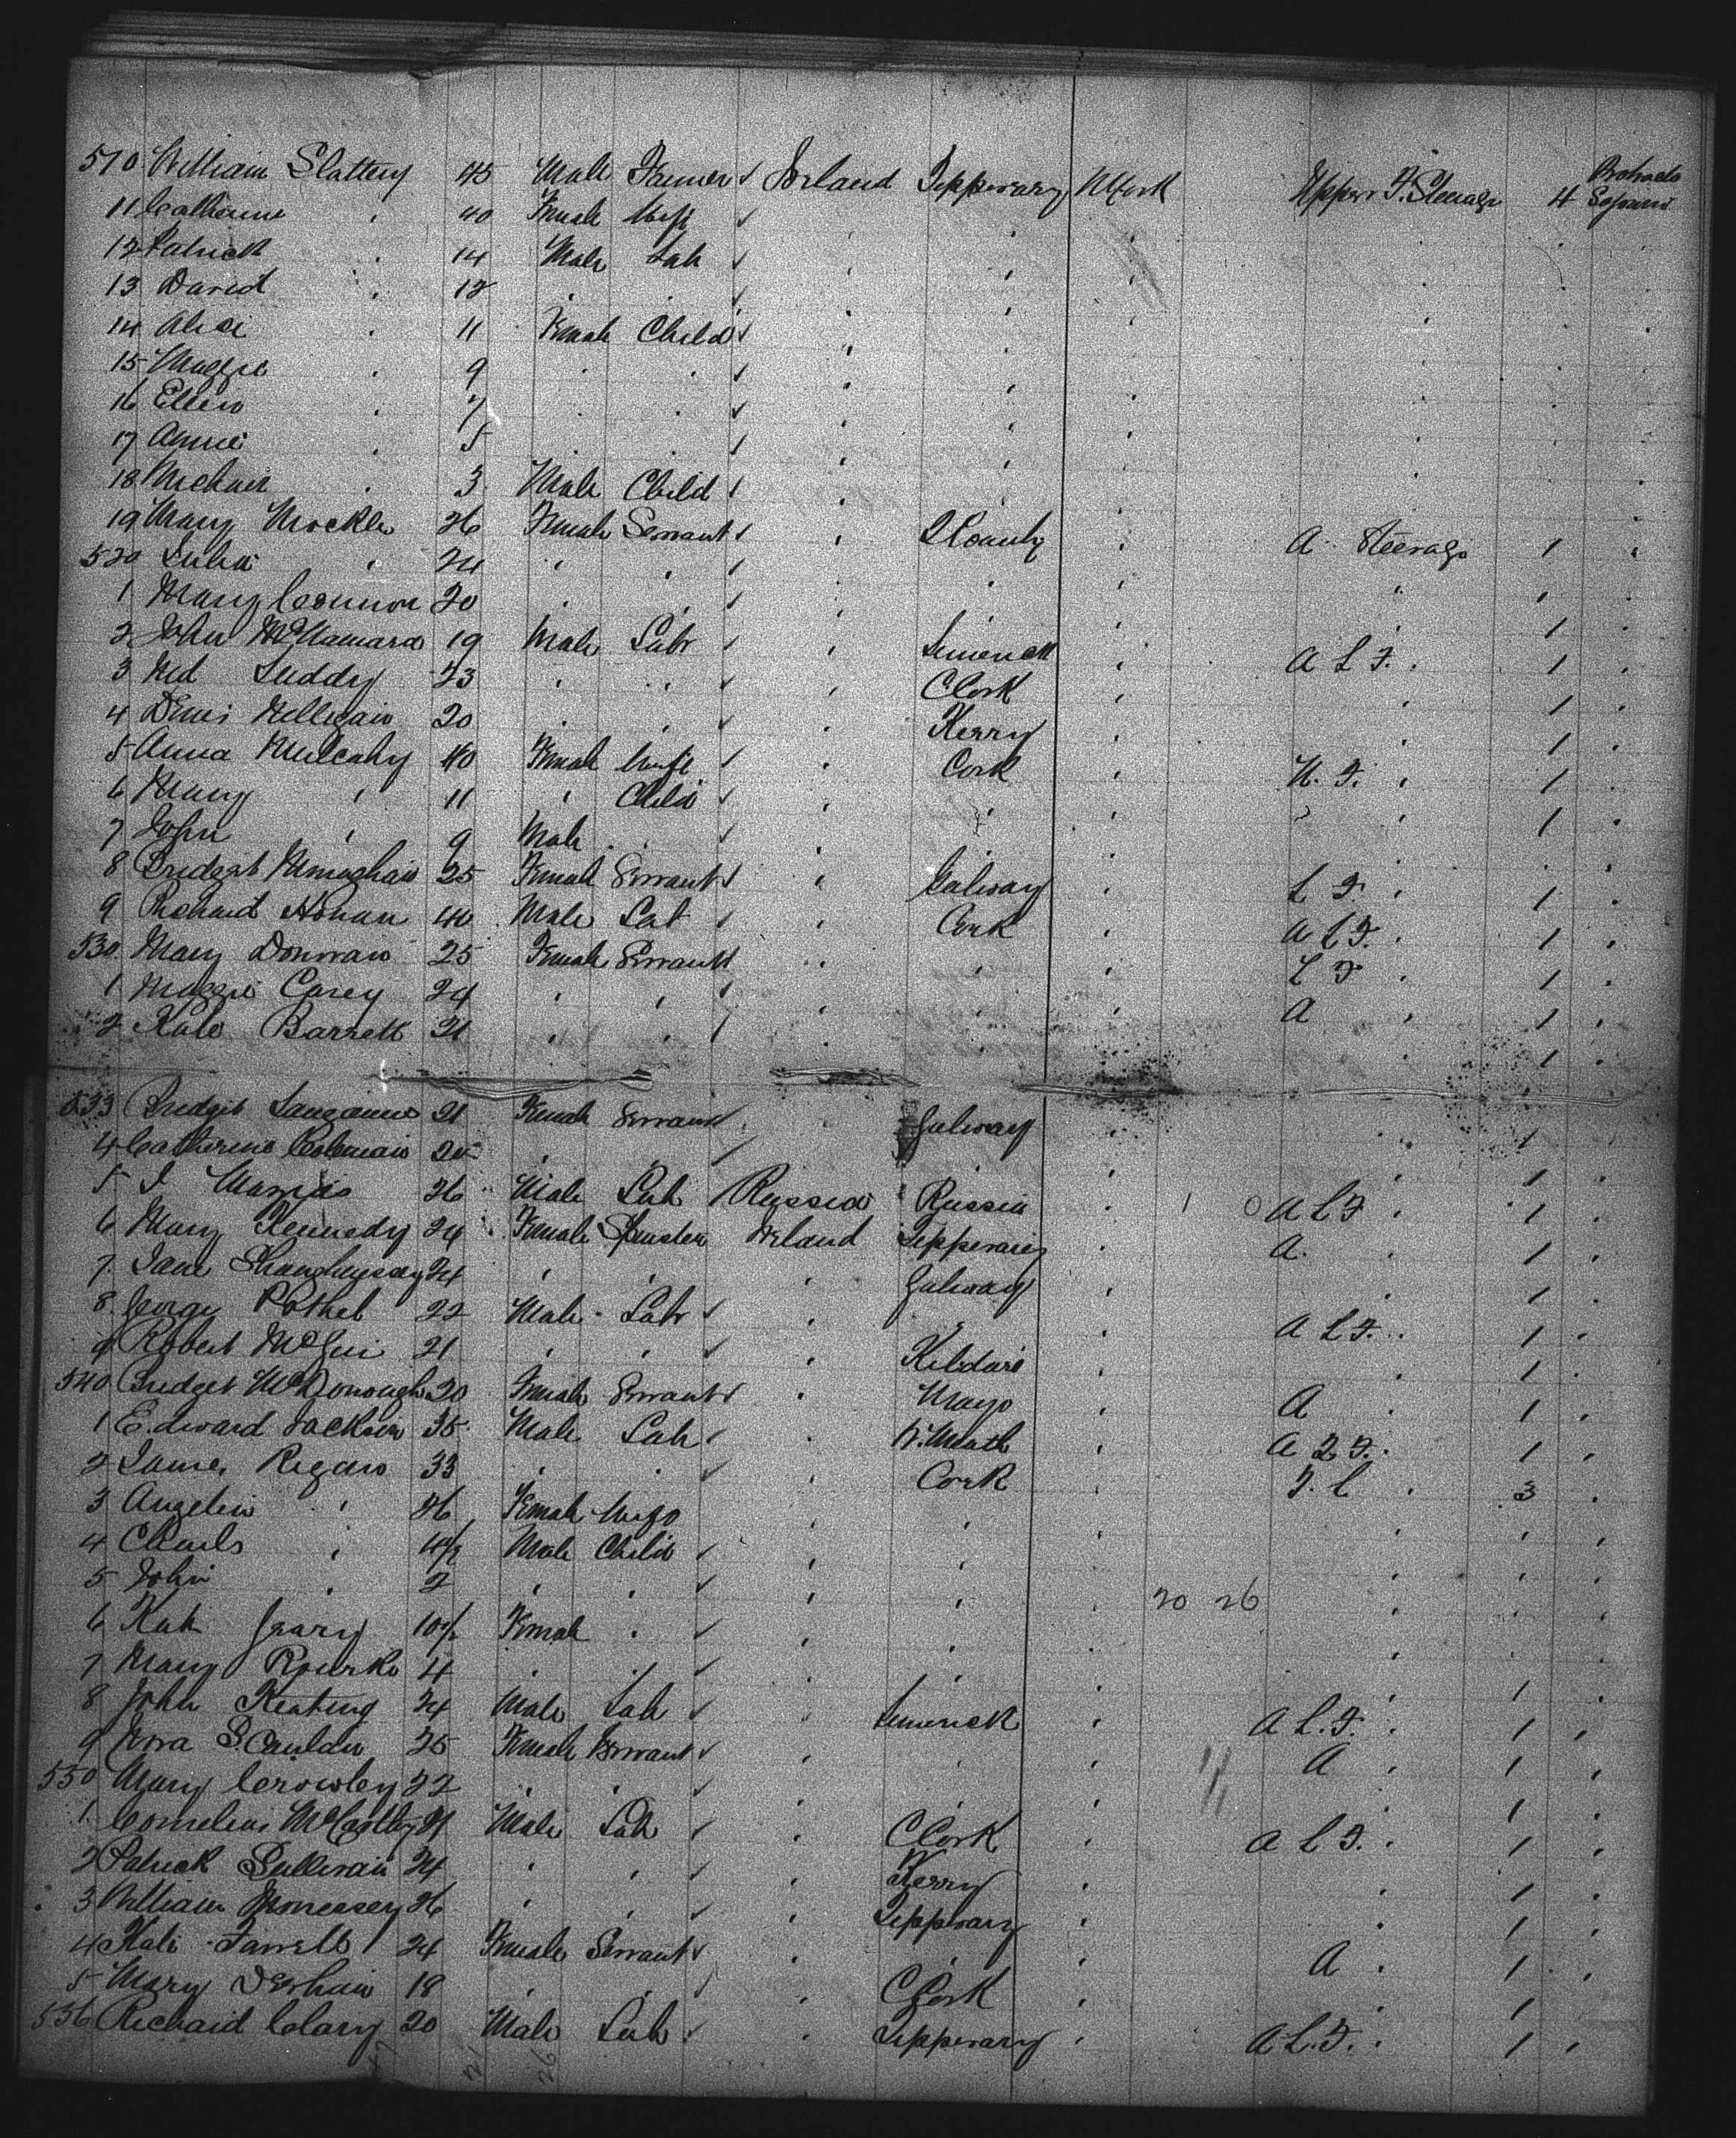 510 William Slattery 45 Male Farmer ✓ Ireland Tipperary NYork Upper F. Steerage 4 Protracted Sojourn
11 Catherine " 40 Female Wife ✓ " " " " "
12 Patrick " 14 Male Lab ✓ " " " " "
13 David " 12 " " ✓ " " " " "
14 Alice " 11 Female Child ✓ " " " " "
15 Maggie " 9 " " ✓ " " " " "
16 Ellen " 7 " " ✓ " " " " "
17 Annie " 5 " " ✓ " " " " "
18 Michael " 3 Male Child ✓ " " " " "
19 Mary Mockler 26 Female Servant ✓ " " A Steerage 1 "
520 Julia " 24 " " ✓ " " " " 1 "
1 Mary Connor 20 " " ✓ " " " " 1 "
2 John McNamara 19 Male Labr ✓ " Limerick " A L F. " 1 "
3 Ned Luddy 23 " " ✓ " C Cork " " 1 "
4 Denis Nelligan 20 " " ✓ " Kerry " " 1 "
5 Anna Mulcahy 40 Female Wife ✓ " Cork " U. F. " 1 "
6 Mary " 11 " Child ✓ " " " " 1 "
7 John " 9 Male " ✓ " " " " " "
8 Bridget Monaghan 25 Female Servant ✓ " Galway " L F. " 1 "
9 Richard Honan 40 Male Lab ✓ " Cork " A L F. " 1 "
530 Mary Donovan 25 Female Servant ✓ " " " L F " 1 "
1 Maggie Carey 24 " " ✓ " " " A " 1 "
2 Kate Barrett 21 " " ✓ " " " " 1 "
533 Bridget 21 Female Servant ✓ " Galway " " 1 "
4 Catherine Coleman 20 " " ✓ " " " " 1 "
5 J 26 Male Lab ✓ Russia Russia " 1 0 A L F " 1 "
6 Mary Kennedy 24 Female Spinster Ireland Tipperary " A. " 1 "
7 Jane Shaughnessy 24 " " " Galway " " 1 "
8 George 22 Male Labr ✓ " " " A L F. " 1 "
9 Robert McGee 21 " " ✓ " Kildare " " 1 "
540 Bridget McDonough 20 Female Servant ✓ " Mayo " A " 1 "
1 Edward Jackson 35 Male Lab ✓ " W. Meath " A L F. " 1 "
2 James Regan 33 " " ✓ " Cork " F. L " 3 "
3 Angelin " 26 Female Wife " " " " " "
4 Charls " 4/2 Male Child ✓ " " " " " "
5 John " 2 " " ✓ " " " 20 26 " " "
6 Kate Geary 10/2 Female " ✓ " " " " " "
7 Mary 4 " " ✓ " " " " 1 "
8 John Keating 24 Male Lab ✓ " Limerick " A L. F. " 1 "
9 Nora 25 Female Servant ✓ " " " A " 1 "
550 Mary Crowley 22 " " ✓ " " " " 1 "
1 Cornelius McCarthy 21 Male Lab ✓ " C Cork " A L F. " 1 "
2 Patrick Sullivan 24 " " ✓ " Kerry " " 1 "
3 William 26 " " ✓ " Tipperary " " 1 "
4 Kate Farrell 24 Female Servant ✓ " " " A " 1 "
5 Mary 18 " " ✓ " C Cork " " 1 "
556 Richard Clary 20 Male Lab ✓ " Tipperary " A L. F. " 1 "